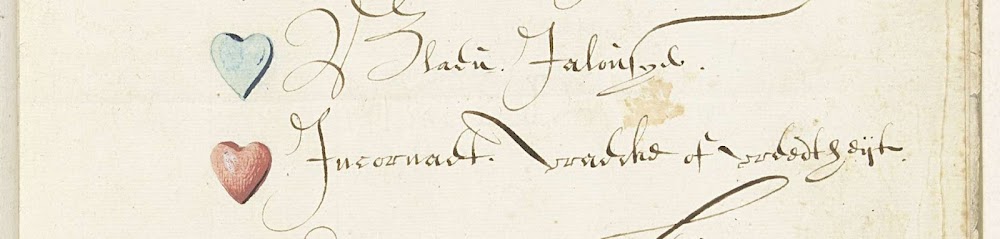 Bladu. Jalousye.
Incornadt. Wradcke of wreedtheijt.